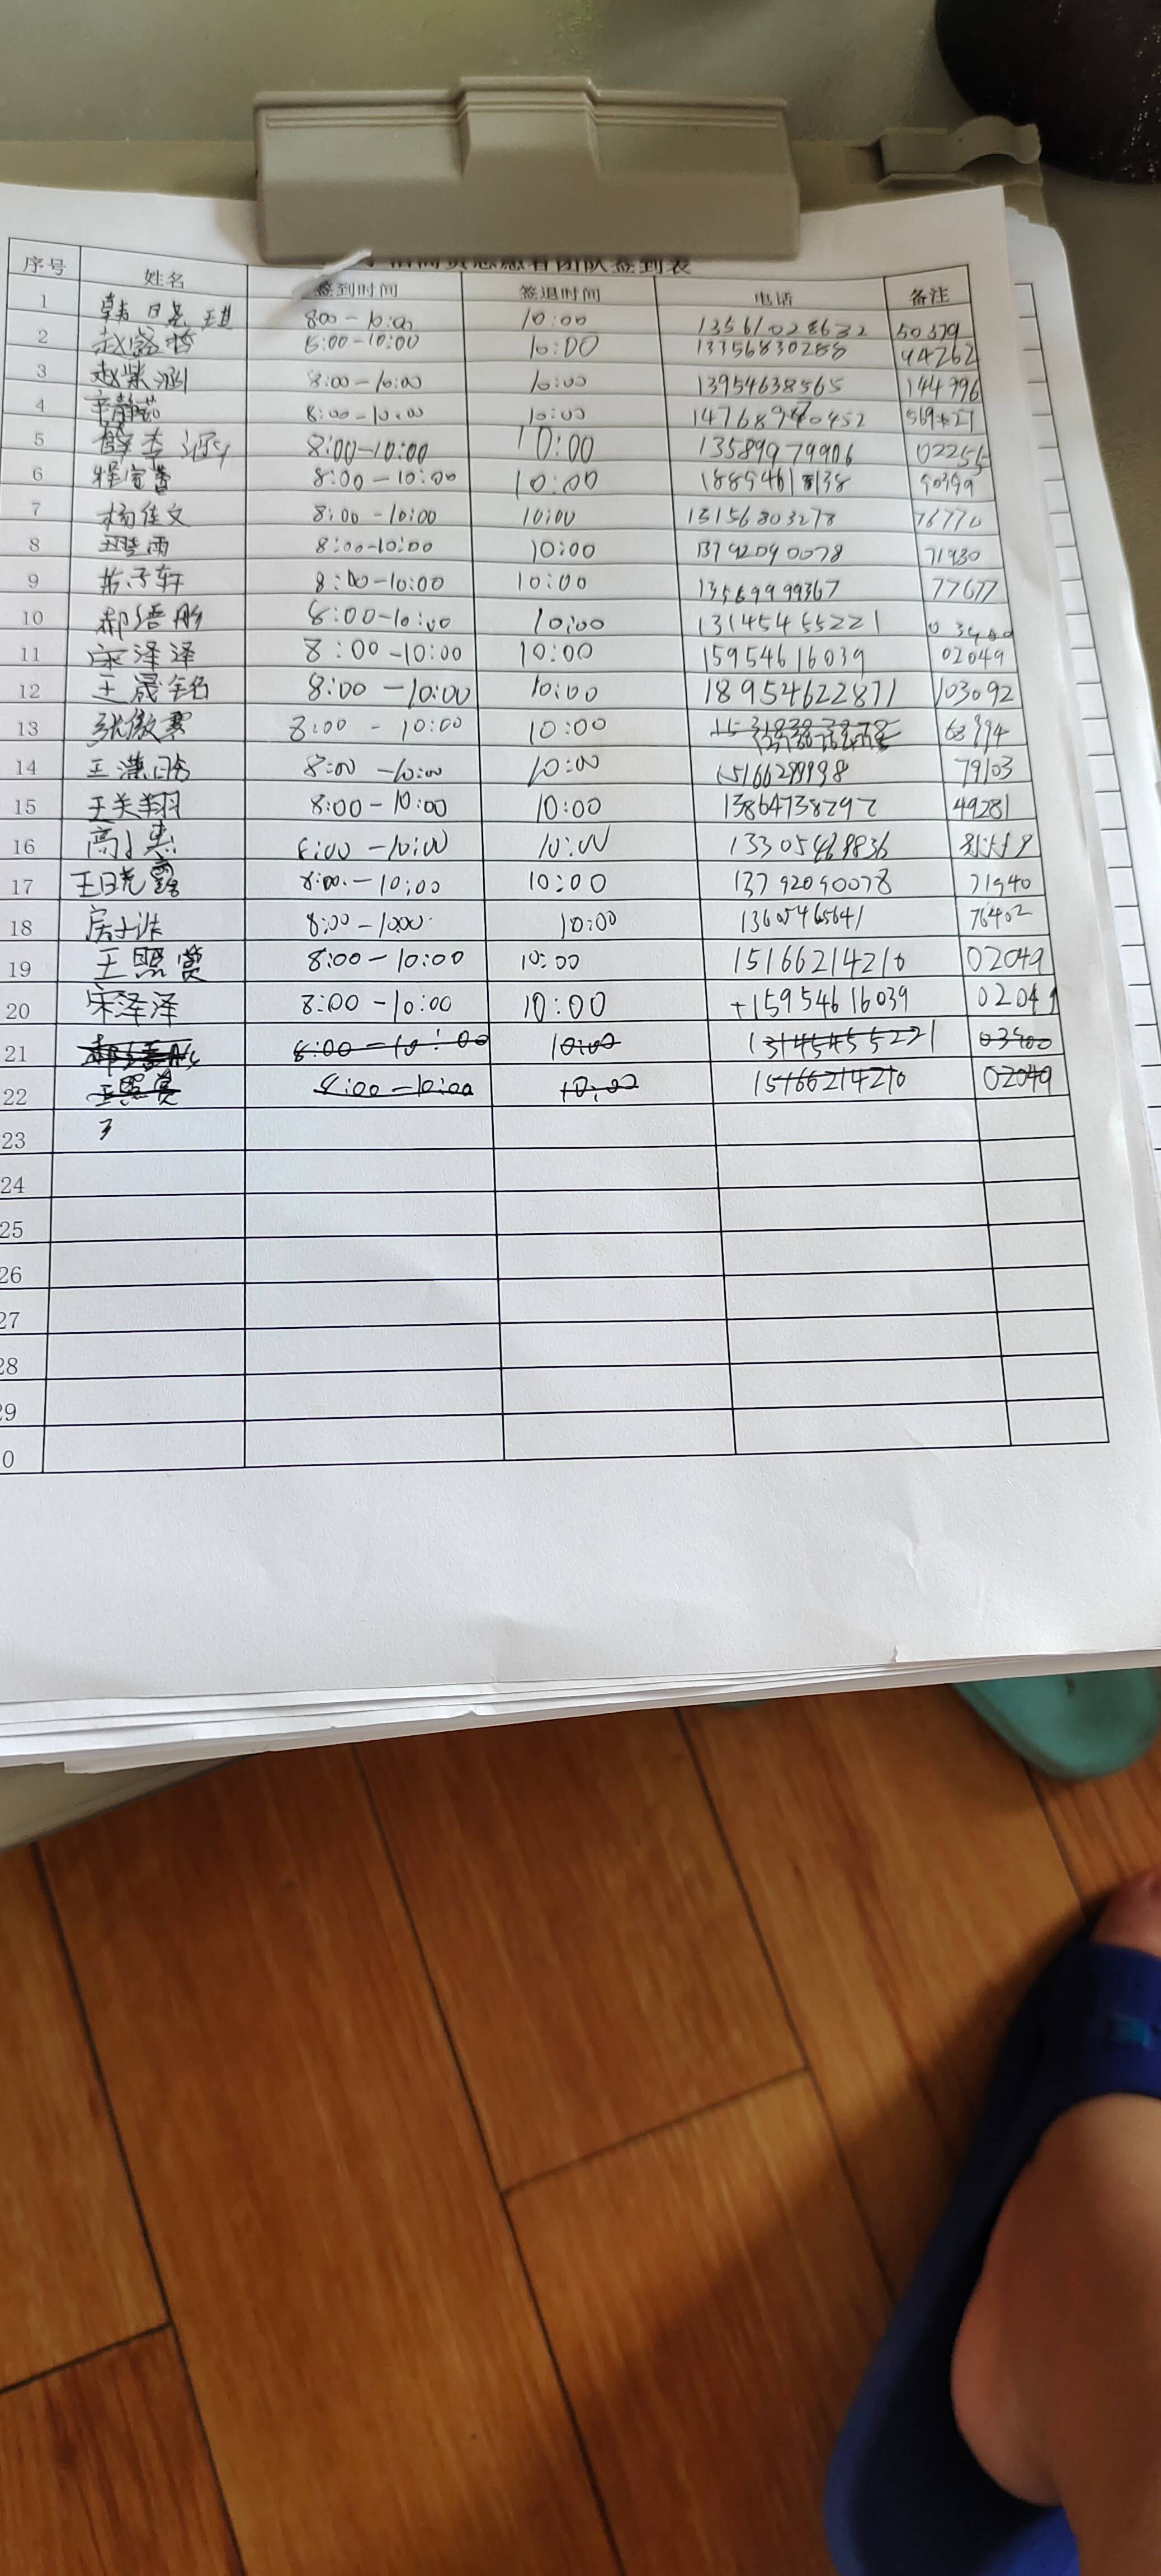 愿者团队签到表
序号 姓名 签到时间 签退时间 电话 备注
1 韩 800-10:00 10:00 13561028632 50379
2 赵 8:00-10:00 10:00 13356830288 44262
3 赵紫涵 8:00-10:00 10:00 13954638565 144996
4 辛静茹 8:00-10:00 10:00
5 薛李涵 8:00-10:00 10:00 13589979906 02255
6 程 8:00-10:00 10:00 90399
7 杨佳文 8:00-10:00 10:00 13156803278 76770
8 雨 8:00-10:00 10:00 13792090078 71930
9 子轩 8:00-10:00 10:00 13569999367 77677
10 郝语彤 8:00-10:00 10:00 13145455221
11 宋泽泽 8:00-10:00 10:00 15954616039 02049
12 王晟铭 8:00-10:00 10:00 18954622871 103092
13 张傲 8:00-10:00 10:00 68994
14 王潇晗 8:00-10:00 10:00 15166299998 79103
15 王关翔 8:00-10:00 10:00 13864738292 49281
16 高小惠 8:00-10:00 10:00
17 王晓露 8:00-10:00 10:00 13792090078 71940
18 房 8:00-1000 10:00 13605465641 76402
19 王照赏 8:00-10:00 10:00 15166214210 02049
20 宋泽泽 8:00-10:00 10:00 +15954616039 02049
21 郝语彤 8:00-10:00 10:00 13145455221 03900
22 王照赏 8:00-10:00 10:00 15166214210 02049
23
24
25
26
27
28
29
0